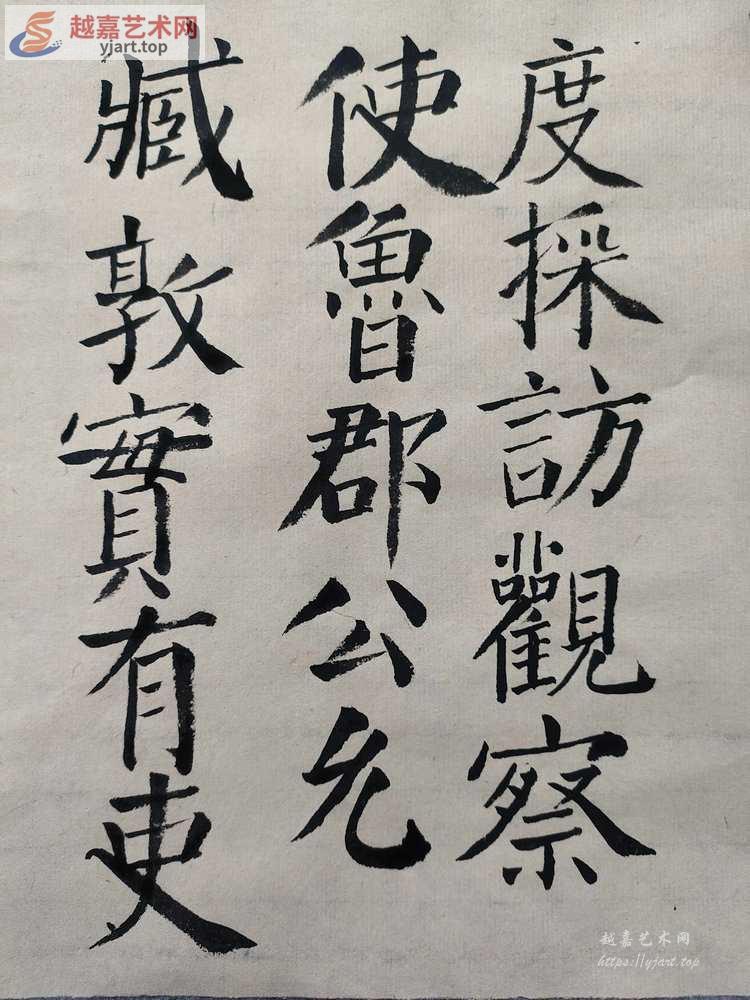 越嘉艺术网
yjart.top
度採訪觀察
使魯郡公允
臧敦實有吏
越嘉艺术网
https://yjart.top